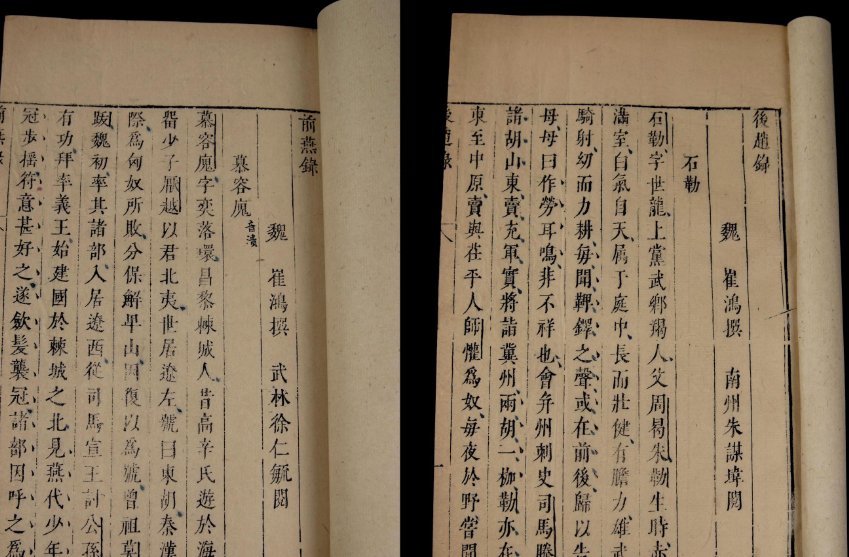 後趙錄
魏 崔鴻撰 南州朱謀㙔閱
石勒
石勒字世龍上黨武鄉羯人父周曷朱勒生時赤
滿室白氣自天属于庭中長而壯健有膽力雄武
騎射幼而力耕每聞鞞鐸之聲或在前後歸以告
母母曰作勞耳鳴非不祥也會并州刺史司馬騰
諸胡山東賣充軍實將詣冀州兩胡一枷勒亦在
東至中原賣與茌平人師懽爲奴每夜於野嘗聞
後趙錄
前燕錄
魏 崔鴻撰 武林徐仁毓閱
慕容廆音瀆
慕容廆字奕落瓌昌黎棘城人昔高辛氏遊於海
留少子厭越以君北夷世居遼左號曰東胡秦漢
際爲匈奴所敗分保鮮卑山因復以爲號曾祖莫
跋魏初率其諸部入居遼西從司馬宣王討公孫
有功拜率義王始建國於棘城之北見燕代少年
冠步揺符意甚好之遂斂髮襲冠諸部因呼之爲
前燕錄